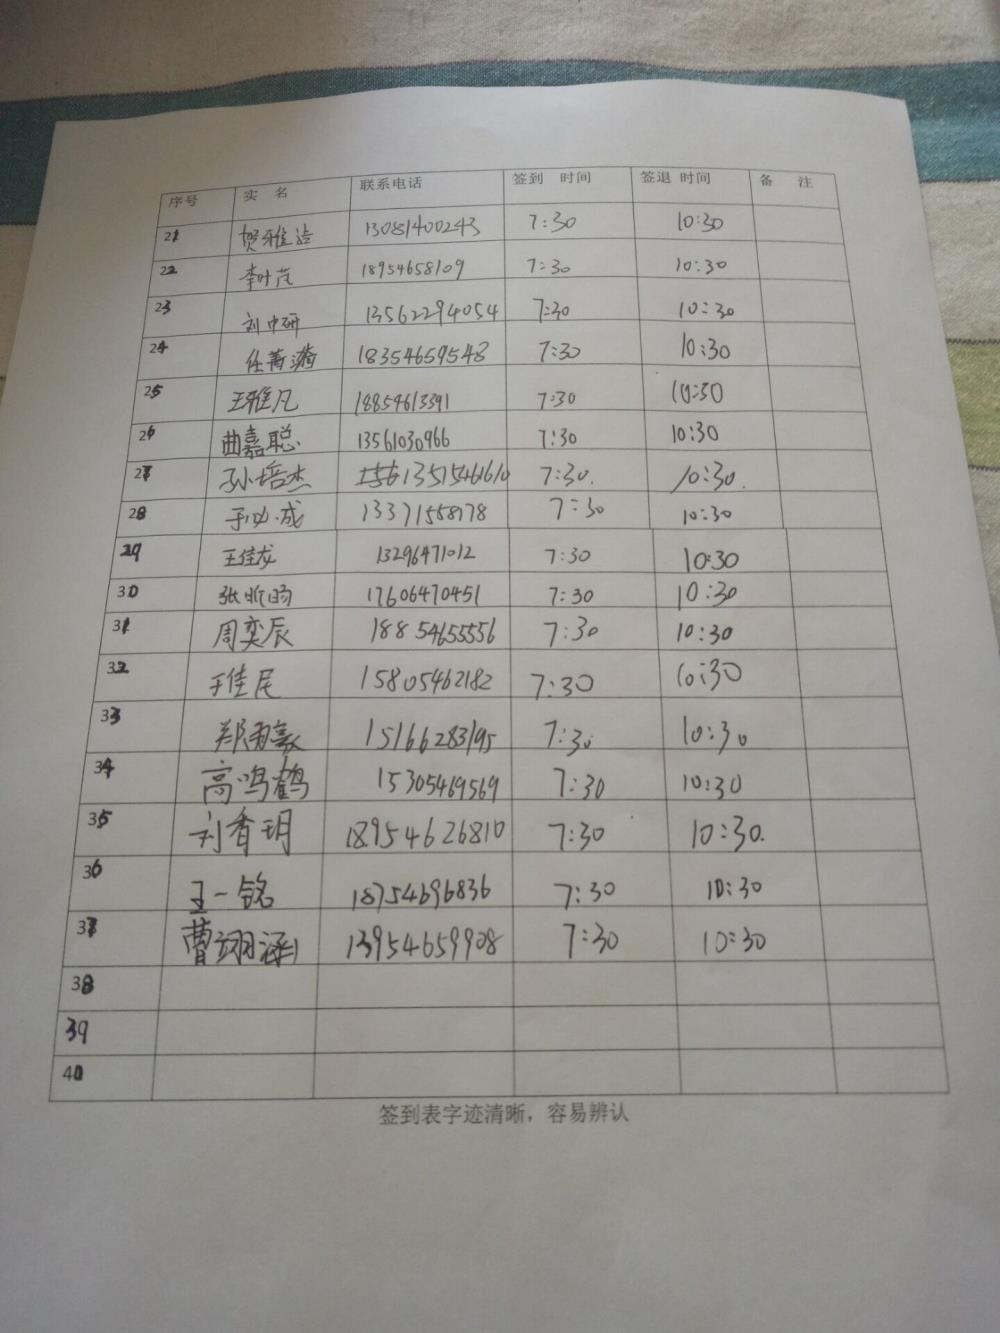 序号 实 名 联系电话 签到 时间 签退 时间 备 注
21 贺雅洁 13081400243 7:30 10:30
22 李叶茂 18954658109 7:30 10:30
23 刘中研 13562294054 7:30 10:30
24 任菁漪 18354659548 7:30 10:30
25 王雅凡 18854613391 7:30 10:30
26 曲嘉聪 13561030966 7:30 10:30
27 孙培杰 13515461610 7:30. 10:30.
28 7:30 10:30
29 王佳龙 13296471012 7:30 10:30
30 张昕旸 17606470451 7:30 10:30
31 周奕辰 18854655556 7:30 10:30
32 15805462182 7:30 10:30
33 郑雨豪 15166283195 7:30 10:30
34 高鸣鹤 15305469569 7:30 10:30
35 刘香玥 18954626810 7:30 10:30.
36 王一铭 18754696836 7:30 10:30
37 曹翊涵 13954659908 7:30 10:30
38
39
40
签到表字迹清晰，容易辨认